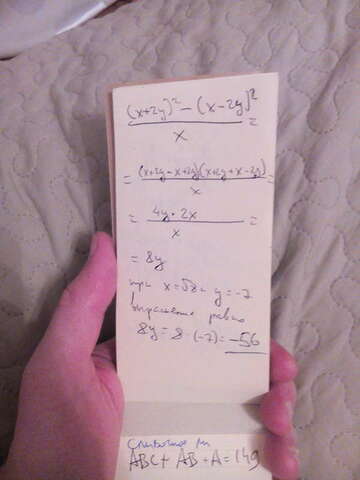 (x+2y)² - (x-2y)²
x =
= (x+2y-x+2y)(x+2y+x-2y) =
x
= 4y·2x =
x
= 8y
при x=√8 y=-7
выражение равно
8y = 8·(-7) = -56
ABC+ AB+A=149